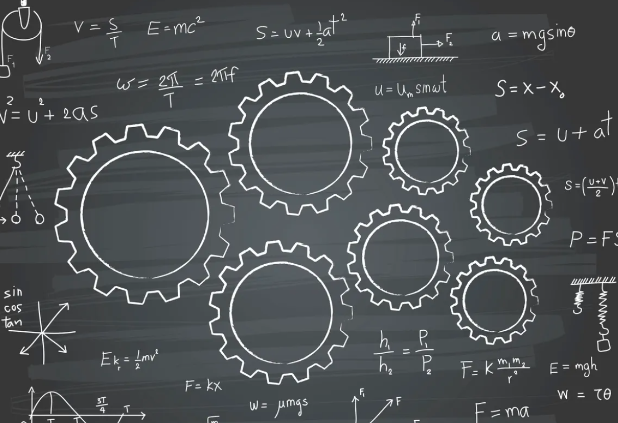 V = S/T
E=mc²
S = UV + 1/2 at²
F₁
F₂
a = mgsinθ
F₁
F₂
f
ω = 2π/T = 2πf
u = Uₘ sinωt
S = X - X₀
V² = U² + 2as
S = U + at
S = (U+V/2)t
P = FS
sin
cos
tan
Eₖ = 1/2 mv²
h₁/h₂ = P₁/P₂
F = K m₁m₂/r²
E = mgh
F = kx
W = τθ
3T/4
T
w = μmgs
F₁
F
F = ma